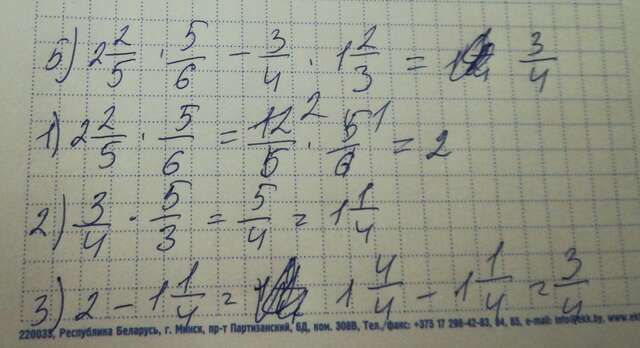 5) 2 2/5 · 5/6 - 3/4 · 1 2/3 = 3/4
1) 2 2/5 · 5/6 = 12 2/5 · 5 1/6 = 2
2) 3/4 · 5/3 = 5/4 = 1 1/4
3) 2 - 1 1/4 = 1 4/4 - 1 1/4 = 3/4
220033, Республика Беларусь, г. Минск, пр-т Партизанский, 6Д, ком. 308В, Тел./факс: +375 17 298-42-83, 84, 85, e-mail: info@ekk.by, www.ek